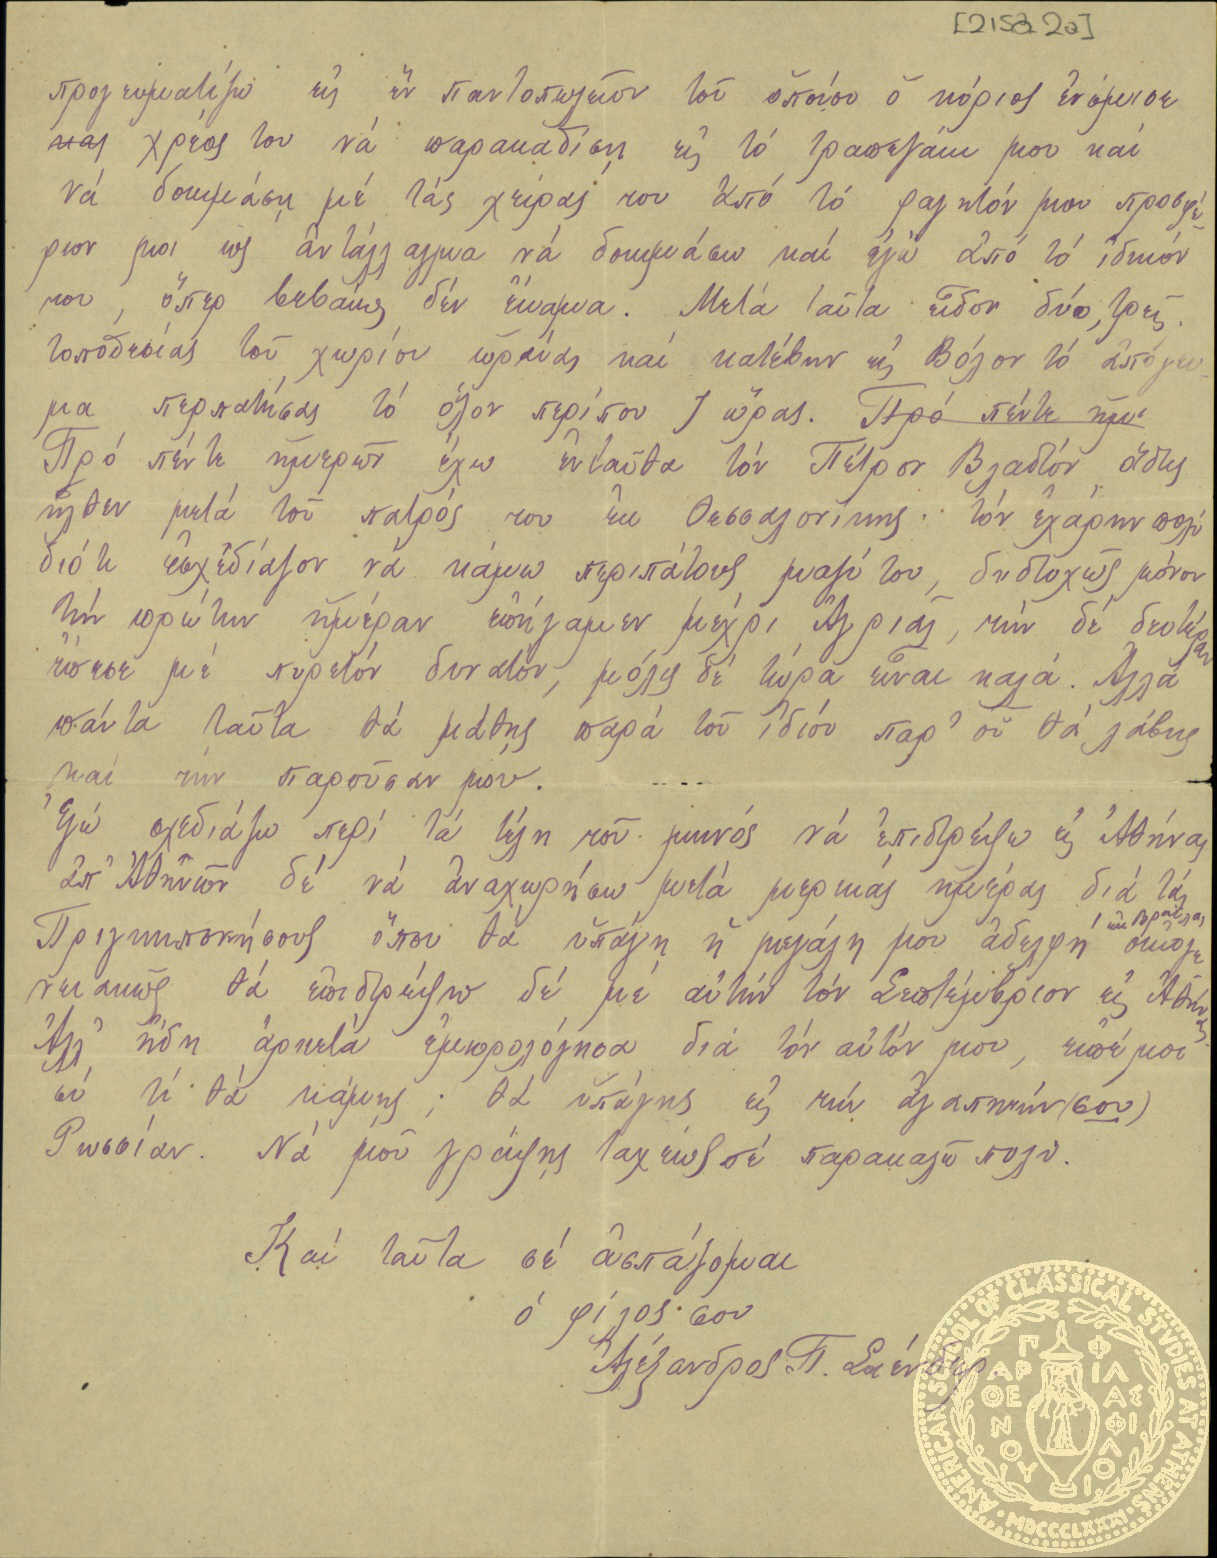 [2158 2a]
προγευματίζω εἰς ἓν παντοπωλεῖον τοῦ ὁποίου ὁ κύριος ἐνόμισε
και χρέος του νά παρακαθίσῃ εἰς τό τραπεζάκι μου καί
νά δοκιμάσῃ μέ τάς χεῖράς του ἀπό τό φαγητόν μου προσφέ-
ρων μοι ὡς ἀντάλλαγμα νά δοκιμάσω καί ἐγώ ἀπό τό ἰδικόν
του, ὅπερ βεβαίως δέν ἔκαμα. Μετά ταῦτα εἶδον δύο, τρεῖς
τοποθεσίας τοῦ χωρίου ὡραίας καί κατέβην εἰς Βόλον τό ἀπόγευ-
μα περπατήσας τό ὅλον περίπου 7 ὥρας. Πρό πέντε ἡμε
Πρό πέντε ἡμερῶν ἔχω ἐνταῦθα τόν Πέτρον Βλαστόν ὅστις
ἦλθεν μετά τοῦ πατρός του ἐκ Θεσσαλονίκης· τόν ἐχάρην πολύ
διότι ἐσχεδίαζον νά κάμω περιπάτους μαζύ του, δυστυχῶς μόνον
τήν πρώτην ἡμέραν ἐπήγαμεν μέχρι Ἀγριᾶς, τήν δέ δευτέραν
ἔπεσε μέ πυρετόν δυνατόν, μόλις δέ τώρα εἶναι καλά. Ἀλλά
πάντα ταῦτα θά μάθῃς παρά τοῦ ἰδίου παρ' οὗ θά λάβῃς
καί τήν παροῦσάν μου.
Ἐγώ σχεδιάζω περί τά τέλη τοῦ μηνός νά ἐπιστρέψω εἰς Ἀθήνας
ἀπ' Ἀθηνῶν δέ νά ἀναχωρήσω μετά μερικάς ἡμέρας διά τάς
Πριγκιπονήσους ὅπου θά ὑπάγῃ ἡ μεγάλη μου ἀδελφή ἐκ Βραΐλας οἰκογε
νειακῶς θά ἐπιστρέψω δέ μέ αὐτήν τόν Σεπτέμβριον εἰς Ἀθήνας
Ἀλλ' ἤδη ἀρκετά ἐμικρολόγησα διά τόν αὐτόν μου, εἰπέ μοι
σύ τί θά κάμῃς; θά ὑπάγῃς εἰς τήν ἀγαπητήν (σου)
Ρωσσίαν. Νά μοῦ γράψῃς ταχέως σέ παρακαλῶ πολύ.
Καί ταῦτα σέ ἀσπάζομαι
ὁ φίλος σου
Ἀλέξανδρος Π. Σκένδερ
AMERICAN SCHOOL OF CLASSICAL STUDIES AT ATHENS · MDCCCLXXXI ·
ΠΑΡΘΕΝΟΥ ΦΙΛΑΣ ΦΙΛΟΙ